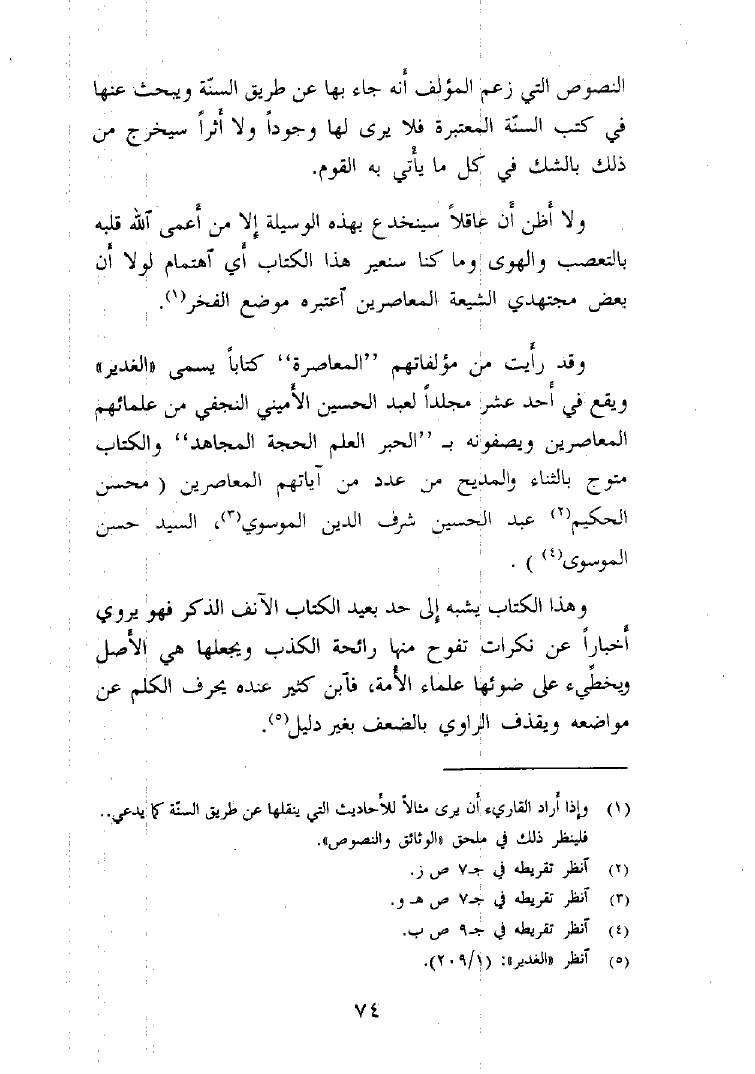 النصوص التي زعم المؤلف أنه جاء بها عن طريق السنّة ويبحث عنها
في كتب السنّة المعتبرة فلا يرى لها وجوداً ولا أثراً سيخرج من
ذلك بالشك في كل ما يأتي به القوم.
ولا أظن أن عاقلاً سينخدع بهذه الوسيلة إلا من أعمى الله قلبه
بالتعصب والهوى وما كنا سنعير هذا الكتاب أي ٱهتمام لولا أن
بعض مجتهدي الشيعة المعاصرين ٱعتبره موضع الفخر(١).
وقد رأيت من مؤلفاتهم "المعاصرة" كتاباً يسمى «الغدير»
ويقع في أحد عشر مجلداً لعبد الحسين الأميني النجفي من علمائهم
المعاصرين ويصفونه بـ "الحبر العلم الحجة المجاهد" والكتاب
متوج بالثناء والمديح من عدد من آياتهم المعاصرين ( محسن
الحكيم(٢) عبد الحسين شرف الدين الموسوي(٣)، السيد حسن
الموسوي(٤) ) .
وهذا الكتاب يشبه إلى حد بعيد الكتاب الآنف الذكر فهو يروي
أخباراً عن نكرات تفوح منها رائحة الكذب ويجعلها هي الأصل
ويخطّيء على ضوئها علماء الأمة، فٱبن كثير عنده يحرف الكلم عن
مواضعه ويقذف الراوي بالضعف بغير دليل(٥).
(١) وإذا أراد القاريء أن يرى مثالاً للأحاديث التي ينقلها عن طريق السنّة كما يدعي..
فلينظر ذلك في ملحق «الوثائق والنصوص».
(٢) ٱنظر تقريظه في جـ٧ ص ز.
(٣) ٱنظر تقريظه في جـ٧ ص هـ و.
(٤) ٱنظر تقريظه في جـ٩ ص ب.
(٥) ٱنظر «الغدير»: (٢٠٩/١).
٧٤